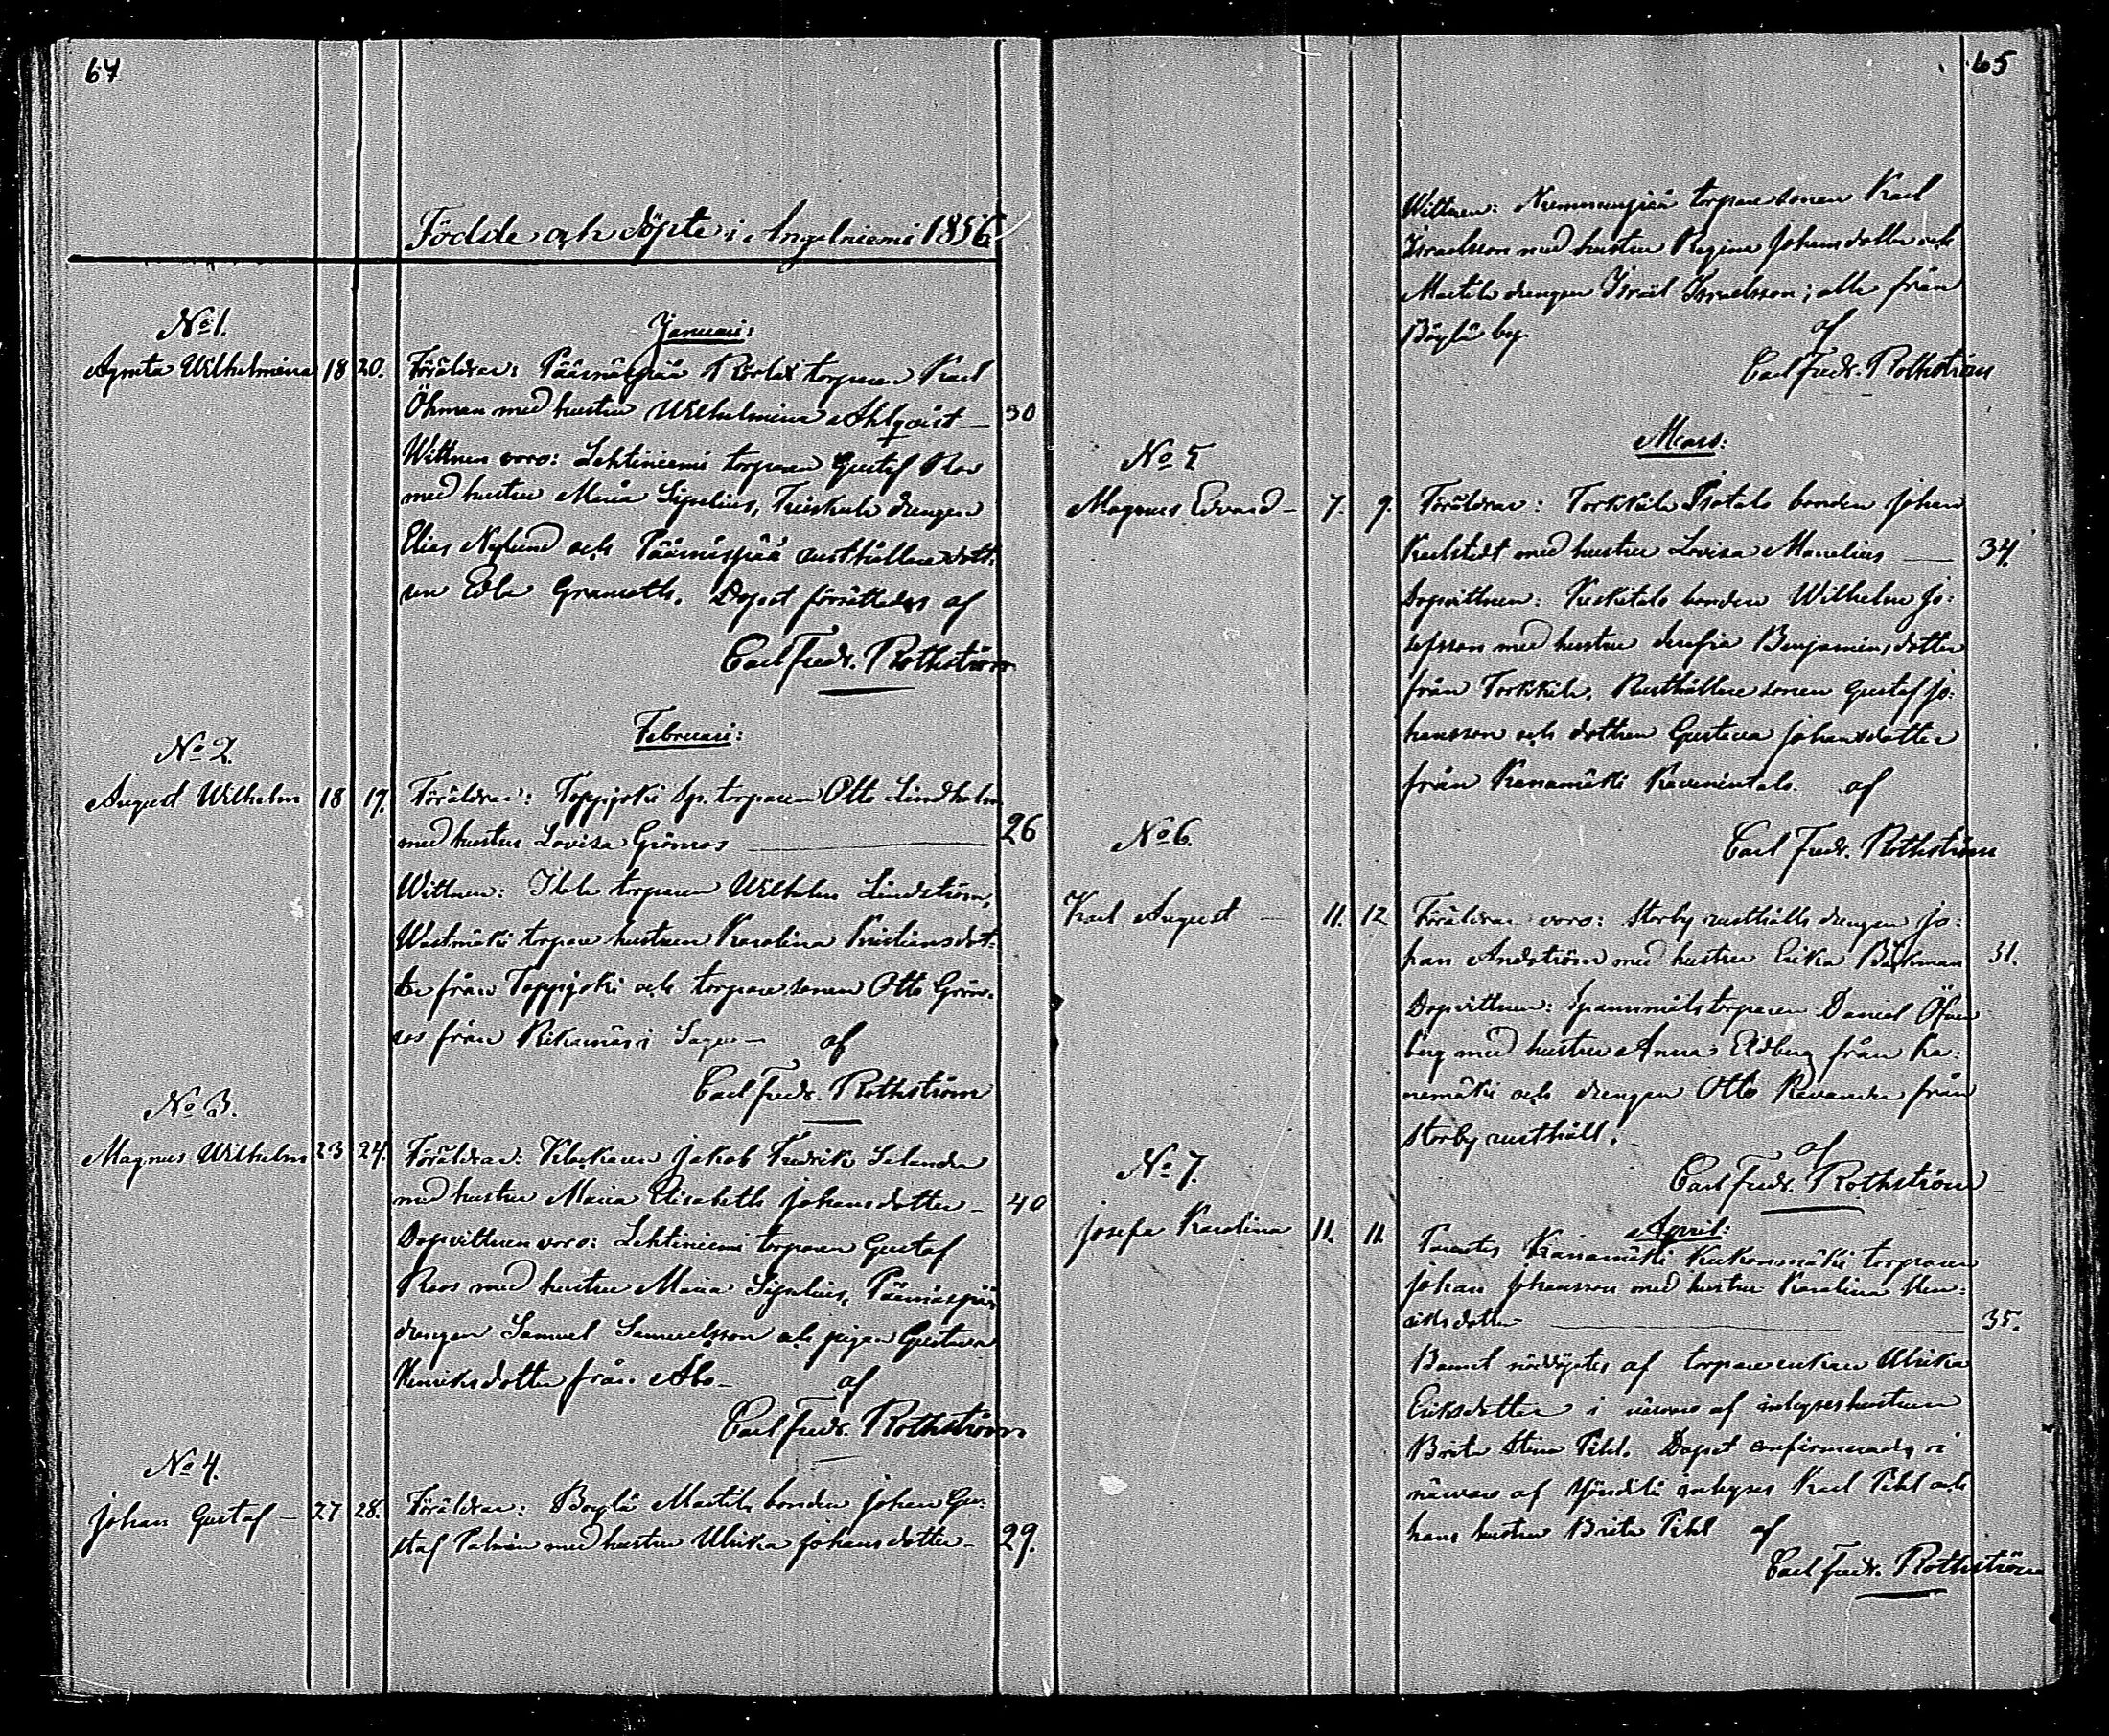 64
Födde och döpte i Angelniemi 1856
Januari:
No 1.
Agneta Wilhelmina 18 20. Föräldrar: Päärnäspää torparen Karl
Öhman med hustru Wilhelmina Ahlqvist 30
Wittnen voro: Lehtiniemi torparen Gustaf Roos
med hustru Maria Sipelius, drengen
Elias Nylund och Päärnäspää rusthållaredott:
ren Edla Granroth. Dopet förrättades af
Carl Fredr. Rothström
Februari:
No 2.
August Wilhelm 18 19. Föräldrar: Toppjoki torparen Otto Lindholm
med hustru Lovisa Grönroos 26
Wittnen: torparen Wilhelm Lindström,
Wästmäki torpare hustrun Karolina Kristiansdot:
ter från Toppjoki och torpare sonen Otto Grön:
roos från af
Carl Fredr. Rothström
No 3.
Magnus Wilhelm 23 24. Föräldrar: Klockaren Jakob Fredrik Selander
med hustru Maria Elisabeth Johansdotter 40
Dopvittnen voro: Lehtiniemi torparen Gustaf
Roos med hustru Maria Sipelius, Päärnäspää
drengen Samuel Samuelsson och pigan Gustava
Henriksdotter från Åbo af
Carl Fredr. Rothström
No 4.
Johan Gustaf 27 28. Föräldrar: Böylä Martila bonden Johan Gu:
staf Palmén med hustru Ulrika Johansdotter 29.
65
Wittnen: torpare sonen Karl
Israelsson med hustru Regina Johansdotter och
Martila drengen Israel Israelsson; alla från
Böylä by. af
Carl Fredr. Rothström
Mars:
No 5
Magnus Edvard 7. 9. Föräldrar: Torkkila Isotalo bonden Johan
Karlstedt med hustru Lovisa Manelius 34.
Dopvittnen: Keskitalo bonden Wilhelm Jo:
sefsson med hustru Benjaminsdotter
från Torkkila. Rusthållare sonen Gustaf Jo:
hansson och dottren Gustava Johansdotter
från Kanamäki af
Carl Fredr. Rothström
No 6.
Karl August 11. 12 Föräldrar voro: Storby rusthålls drengen Jo:
han Andström med hustru Erika Bäckman 31.
Dopvittnen: Spannmåls torparen Daniel
berg med hustru Anna Edberg från Ka:
namäki och drengen Otto Revander från
Storby rusthåll. af
Carl Fredr. Rothström
April:
No 7.
Josefa Karolina 11. 11. Kanamäki Kukonmäki torparen
Johan Johansson med hustru Karolina Hen:
riksdotter 35.
Barnet nöddöptes af torpare enkan Ulrika
Eriksdotter i närvaro af inhyseshustrun
Brita Stina Pihl. Dopet confirmerades i
närvaro af inhyses Karl Pihl och
hans hustru Brita Pihl af
Carl Fredr. Rothström